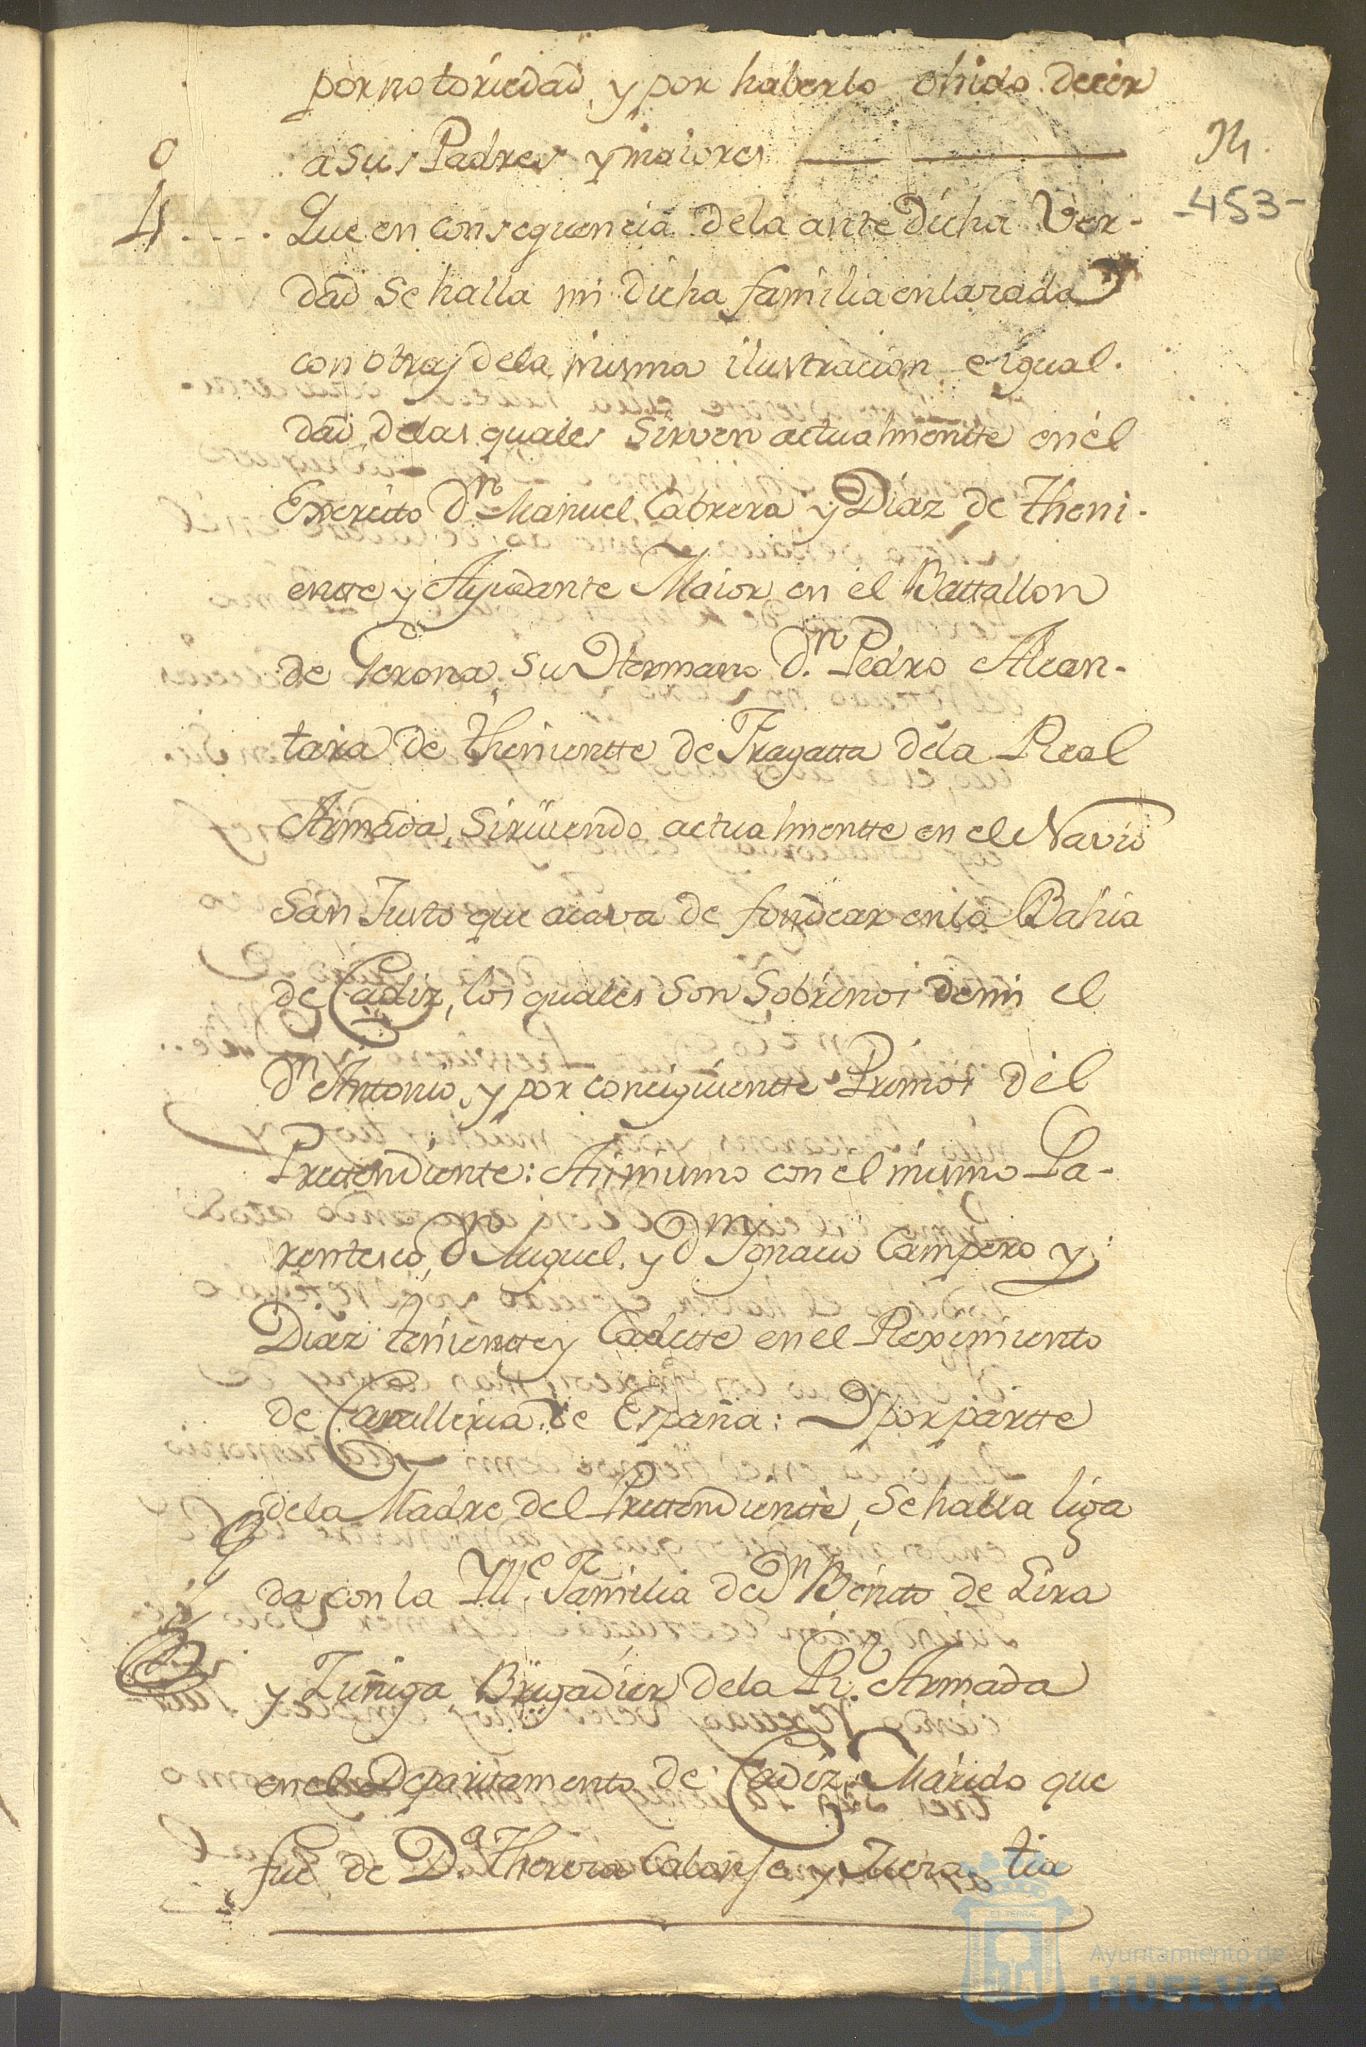 por notoriedad, y por haberlo ohido decir
a sus Padres y maiores
4º .... Que en consequencia dela ante Dicha Ver-
dad se halla mi dicha familia enlazada
con otras dela misma ilustracion e igual-
dad delas quales sirven actualmentte en el
Exercitto Dn Manuel Cabrera y Diaz de Theni-
entte y Ayudante Maior en el Battallon
de Gerona, su Hermano Dn. Pedro Alcan-
tara de thenientte de Fragatta dela Real
Armada, sirviendo actualmentte en el Navio
San Justo que acava de fondear en la Bahia
de Cadiz, los quales son Sobrinos de mi el
Dn Antonio, y por conciguientte Primos del
Prettendiente: Asimismo con el mismo Pa-
rentesco, Dn Miguel, y Dn Ygnacio Campero y
Diaz tenientte y Cadette en el Reximiento
de Cavalleria de España: Y por partte
dela Madre del Prettendientte, se halla liga
da con la Ylle. Familia de Dn Benito de Lira
y Zuñiga, Brigadier dela Rl. Armada
en el Departtamento de Cadiz, Marido que
fue de Da. Theresa Cabonse y tia
94.
-453-
Ayuntamiento de
HUELVA